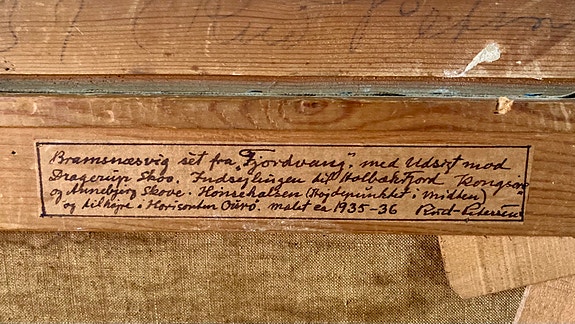 Bramsnæsvig set fra "Fjordvang", med Udsigt mod
Dragerup Skov. Indsejlingen til Holbækfjord
og Annebjerg Skove. Hønsehalsen (Højdepunktet i midten)
og til højre i Horisonten Ourø. malet ca 1935-36 Rud-Petersen